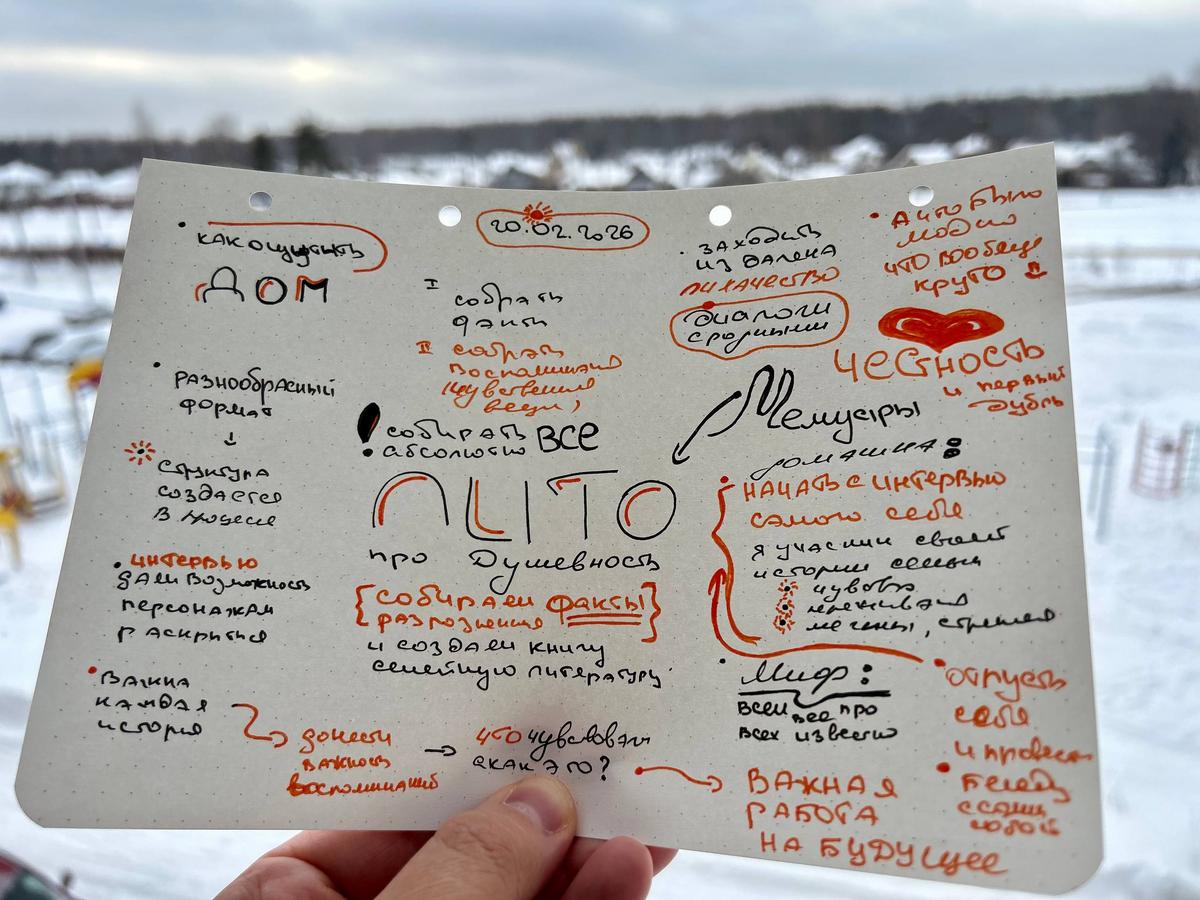 20.02.2026
КАК ОЩУТИТЬ
ДОМ
РАЗНООБРАЗНЫЙ
ФОРМАТ
СТРУКТУРА
СОЗДАЕТСЯ
В
ИНТЕРВЬЮ
ДАЕМ ВОЗМОЖНОСТЬ
ПЕРСОНАЖАМ
РАСКРЫТЬСЯ
ВАЖНА
КАЖДАЯ
ИСТОРИЯ
ДОНЕСТИ
ВАЖНОСТЬ
ВОСПОМИНАНИЙ
ЧТО ЧУВСТВОВАЛ
А КАК ЭТО?
I
СОБРАТЬ
ФАКТЫ
II СОБРАТЬ
ВОСПОМИНАНИЯ
ЧУВСТВЕННЫЕ
ВЕЩИ,
! СОБИРАТЬ ВСЕ
АБСОЛЮТНО
ЛИТО
ПРО ДУШЕВНОСТЬ
[СОБИРАЕМ ФАКТЫ]
РАЗРОЗНЕННЫЕ
И СОЗДАЕМ КНИГУ
СЕМЕЙНУЮ ЛИТЕРАТУРУ
ЗАХОДИТЬ
ИЗДАЛЕКА
ЛИХАЧЕСТВО
ДИАЛОГИ
С РОДНЫМИ
А ЧТО БЫЛО
МОДНО
ЧТО ВООБЩЕ
КРУТО
ЧЕСТНОСТЬ
И ПЕРВЫЙ
ДУБЛЬ
МЕМУАРЫ
ДОМАШКА:
НАЧАТЬ С ИНТЕРВЬЮ
САМОГО СЕБЯ
Я УЧАСТНИК СВОЕЙ
ИСТОРИИ СЕМЬИ
ЧУВСТВА
ПЕРЕЖИВАНИЯ
МИФ:
ВСЕМ ВСЕ ПРО
ВСЕХ ИЗВЕСТНО
ОТПУСТИТЬ
СЕБЯ
И ПРОВЕСТИ
БЕСЕДУ
С САМИМ
СОБОЙ
ВАЖНАЯ
РАБОТА
НА БУДУЩЕЕ